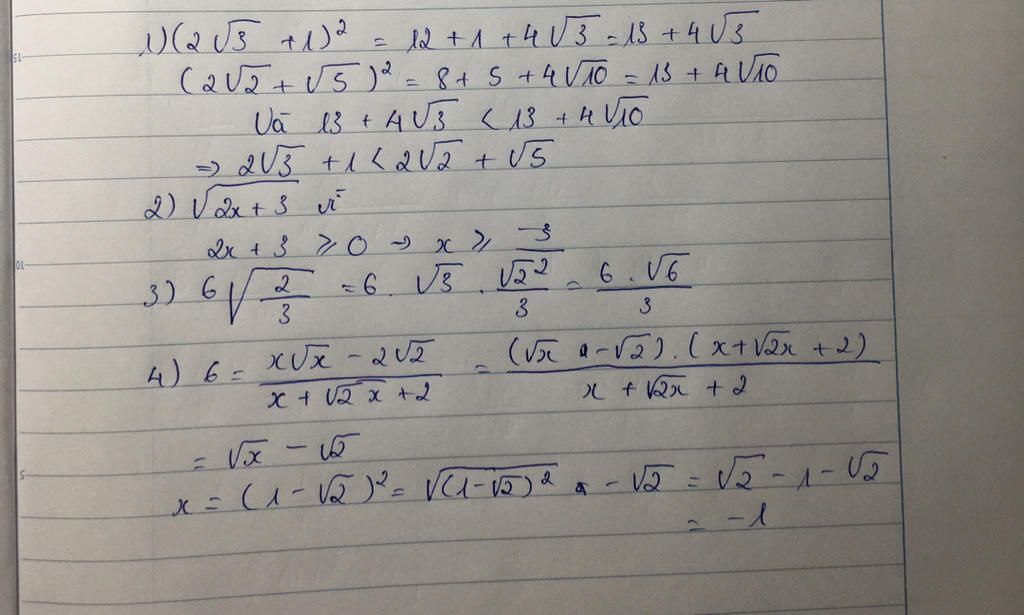 1) (2√3 + 1)² = 12 + 1 + 4√3 = 13 + 4√3
(2√2 + √5)² = 8 + 5 + 4√10 = 13 + 4√10
Vã 13 + 4√3 < 13 + 4√10
⇒ 2√3 + 1 < 2√2 + √5
2) √(2x + 3) vì
2x + 3 ⩾ 0 → x ⩾ -3
3) 6√(2/3) = 6 . √3 . √2²/3 = (6 . √6)/3
4) 6 = (x√x - 2√2)/(x + √2x + 2) = ((√x - √2) . (x + √2x + 2))/(x + √2x + 2)
= √x - √2
x = (1 - √2)² = √(1 - √2)² - √2 = √2 - 1 - √2
= -1